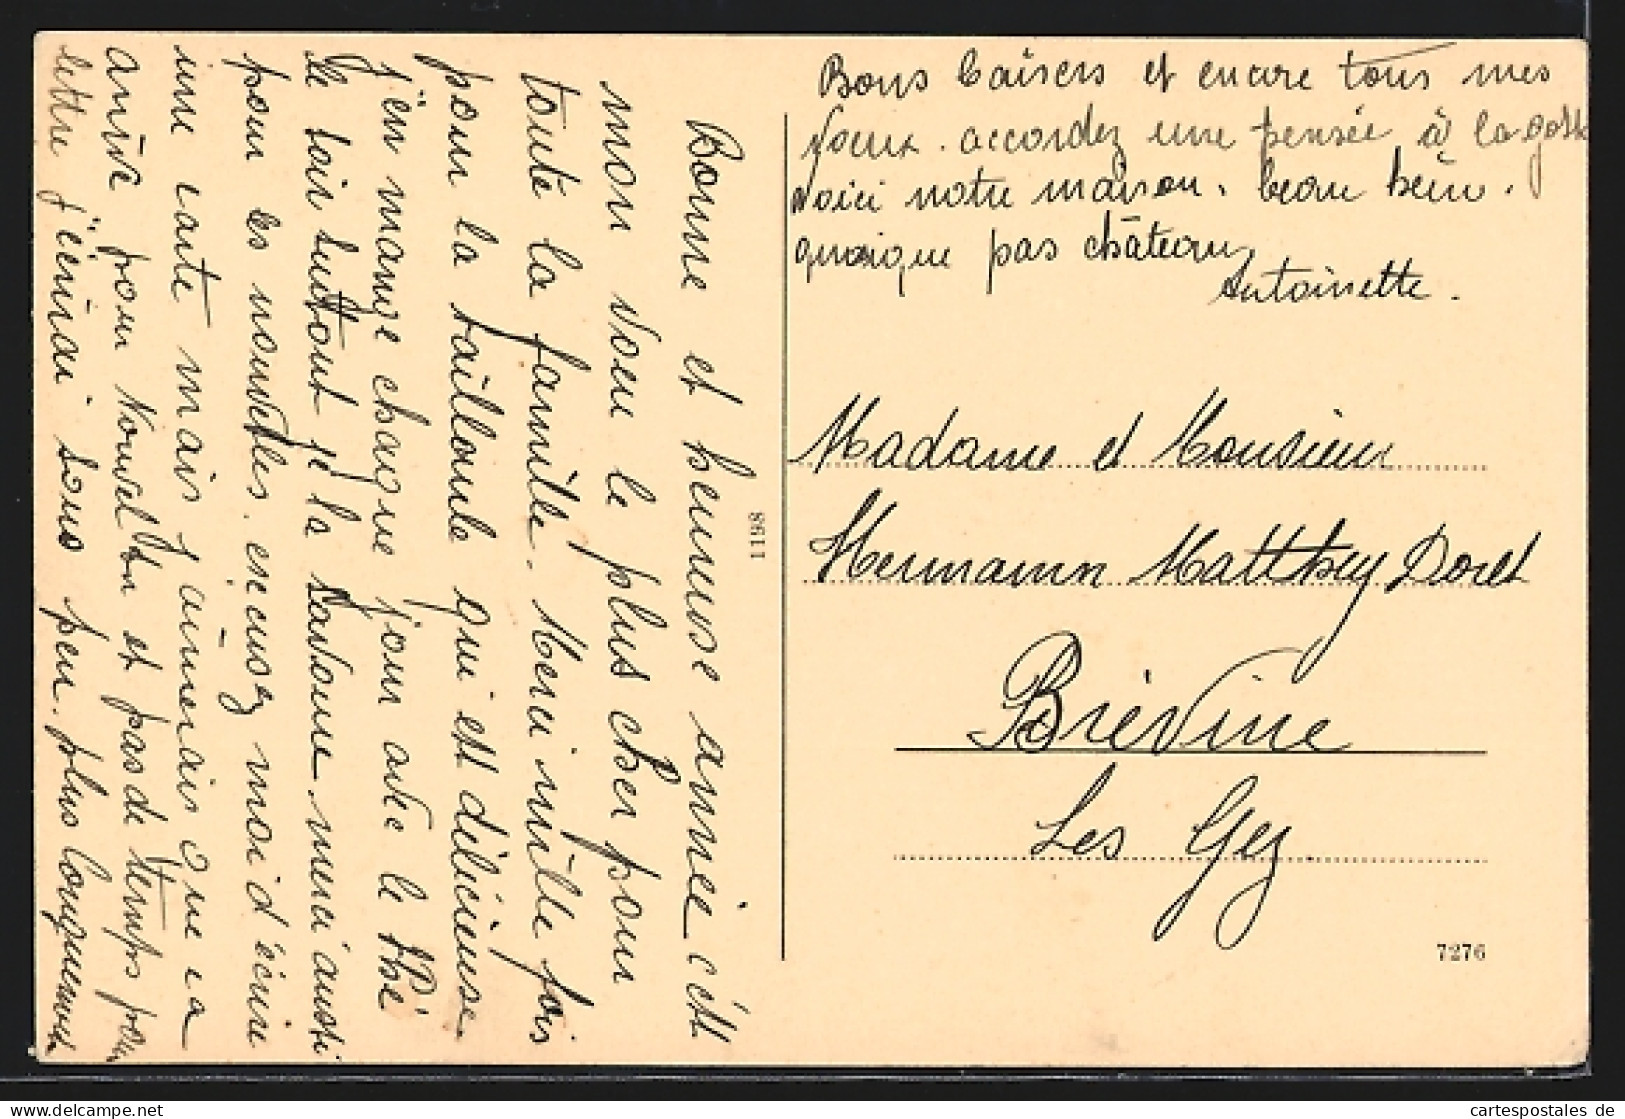 Bonne et heureuse année c'ést
mon voeu le plus cher pour
toute la famille. Merci mille fois
pour la taillaule qui est délicieuse.
j'en mange chaque jour avec le thé
le soir surtout je la savoure merci aussi
pour les nouvelles. excusez moi d'écrire
une carte mais j'aimerais que ca
arrive pour Nouvel An et pas de temps pour
lettre j'écrirai sous peu. plus longuement
Bons baisers et encore tous mes
voeux. accordez une pensée à la gosse
voici notre maison. beau hein.
quoique pas château
Antoinette.
Madame et Monsieur
Hermann Matthey Doret
Brévine
Les Gez
1198
7276
cartespostales de